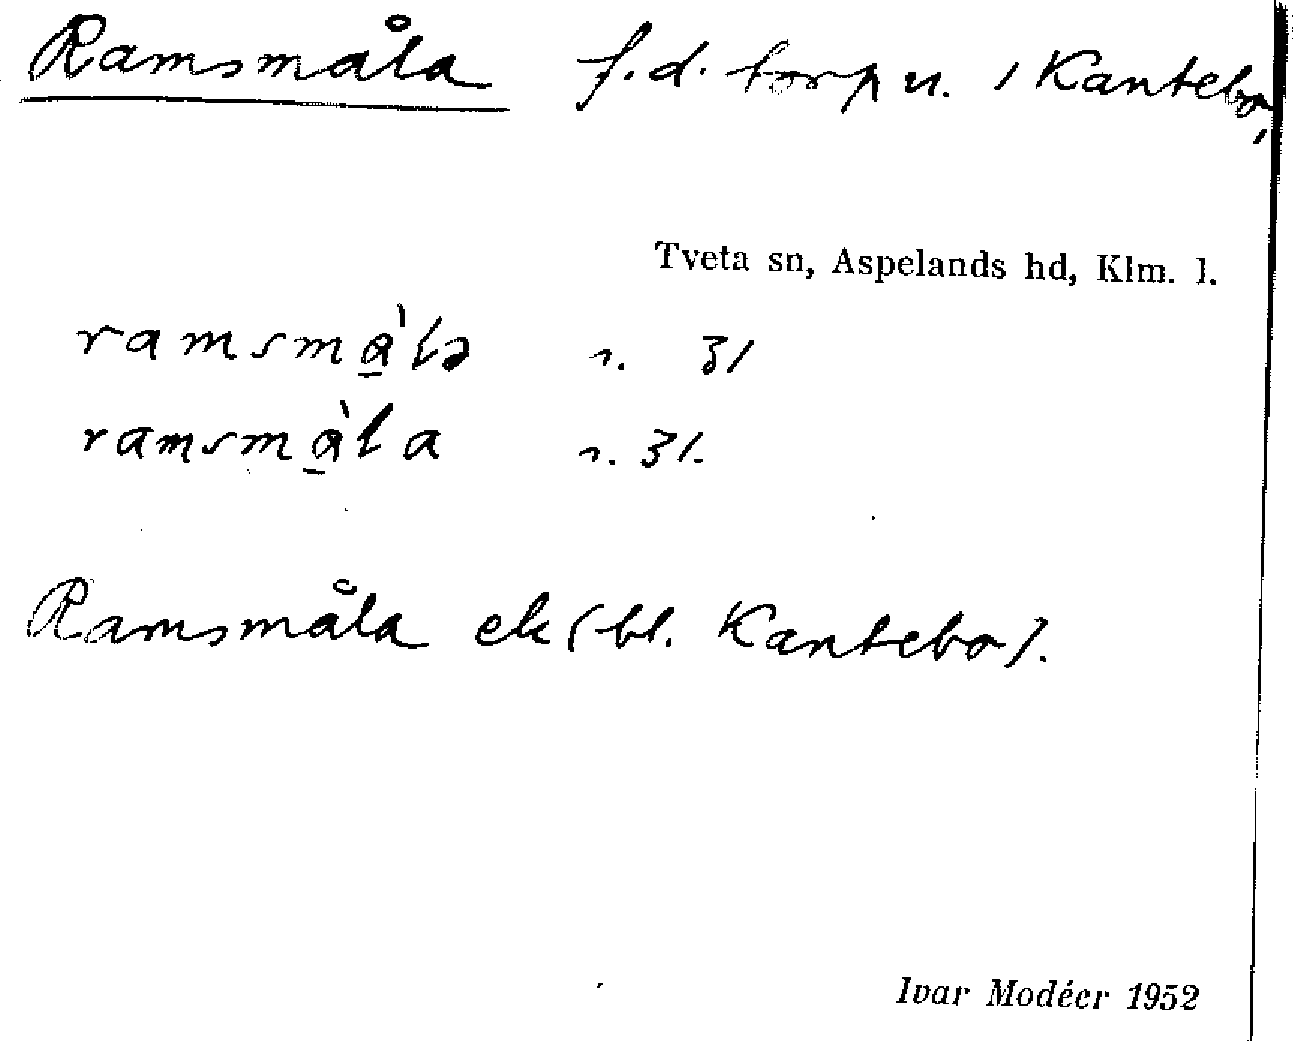 Ramsmåla f.d. torp u. / Kantebo,
Tveta sn, Aspelands hd, Klm. l.
ramsmɑ̠̀lə s. 31
ramsmɑ̠̀la s. 31.
Ramsmåla ek (bl. Kantebo).
Ivar Modéer 1952